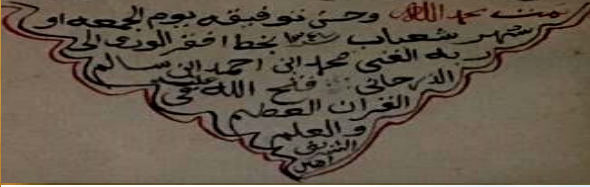 تمت بحمد الله وحسن توفيقه يوم الجمعه او
شهر شعبان بخط افقر الورى الى
ربه الغني محمد ابن احمد ابن سالم
فتح الله عليه في
القران العظيم
والعلم
الشريف
امين